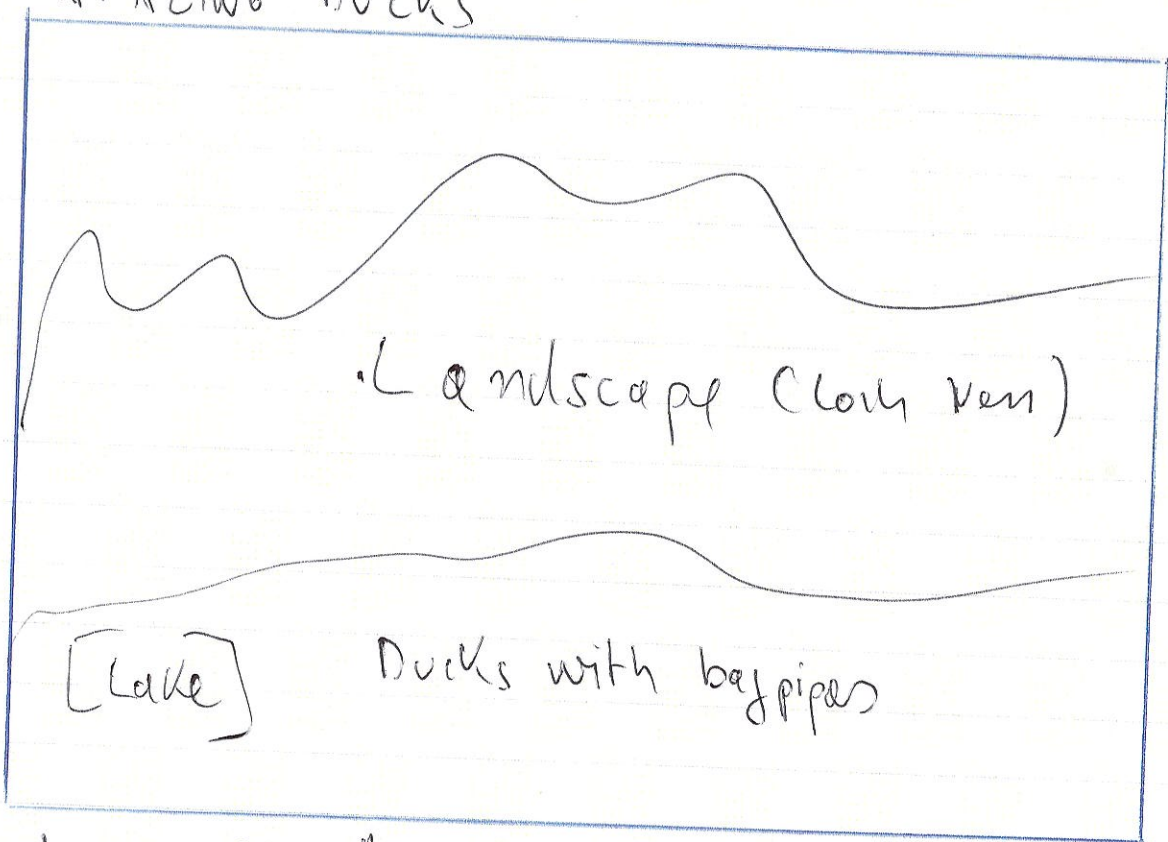 DUCKS
.Landscape (Loch Ness)
[Lake] Ducks with bagpipes